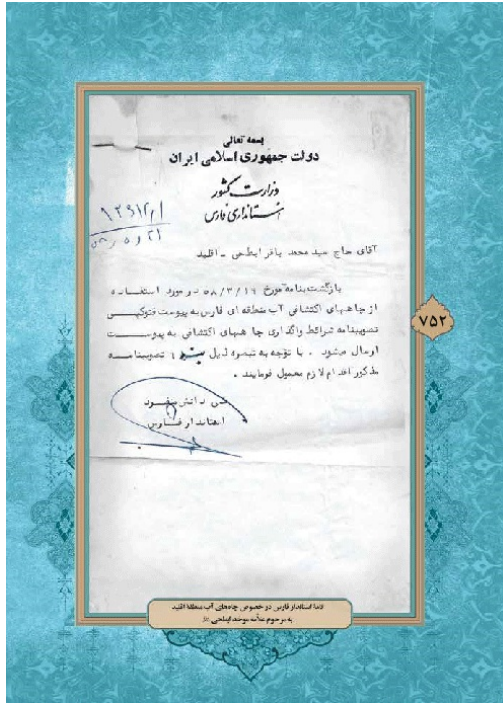 بسمه تعالی
دولت جمهوری اسلامی ایران
وزارت کشور
استانداری فارس
آقای حاج سید محمد باقر ابطحی - اقلید
بازگشت بنامه مورخ ۵۸/۳/۱۶ در مورد استفاده
از چاههای اکتشافی آب منطقه ای فارس به پیوست فتوکپی
تصویبنامه شرائط واگذاری چاههای اکتشافی به پیوست
ارسال میشود . با توجه به تبصره ذیل بند ۴ تصویبنامه
مذکور اقدام لازم معمول فرمایند .
استاندار فارس
۷۵۲
نامۀ استاندار فارس در خصوص چاه‌های آب منطقۀ اقلید
به مرحوم علامه موحد ابطحی